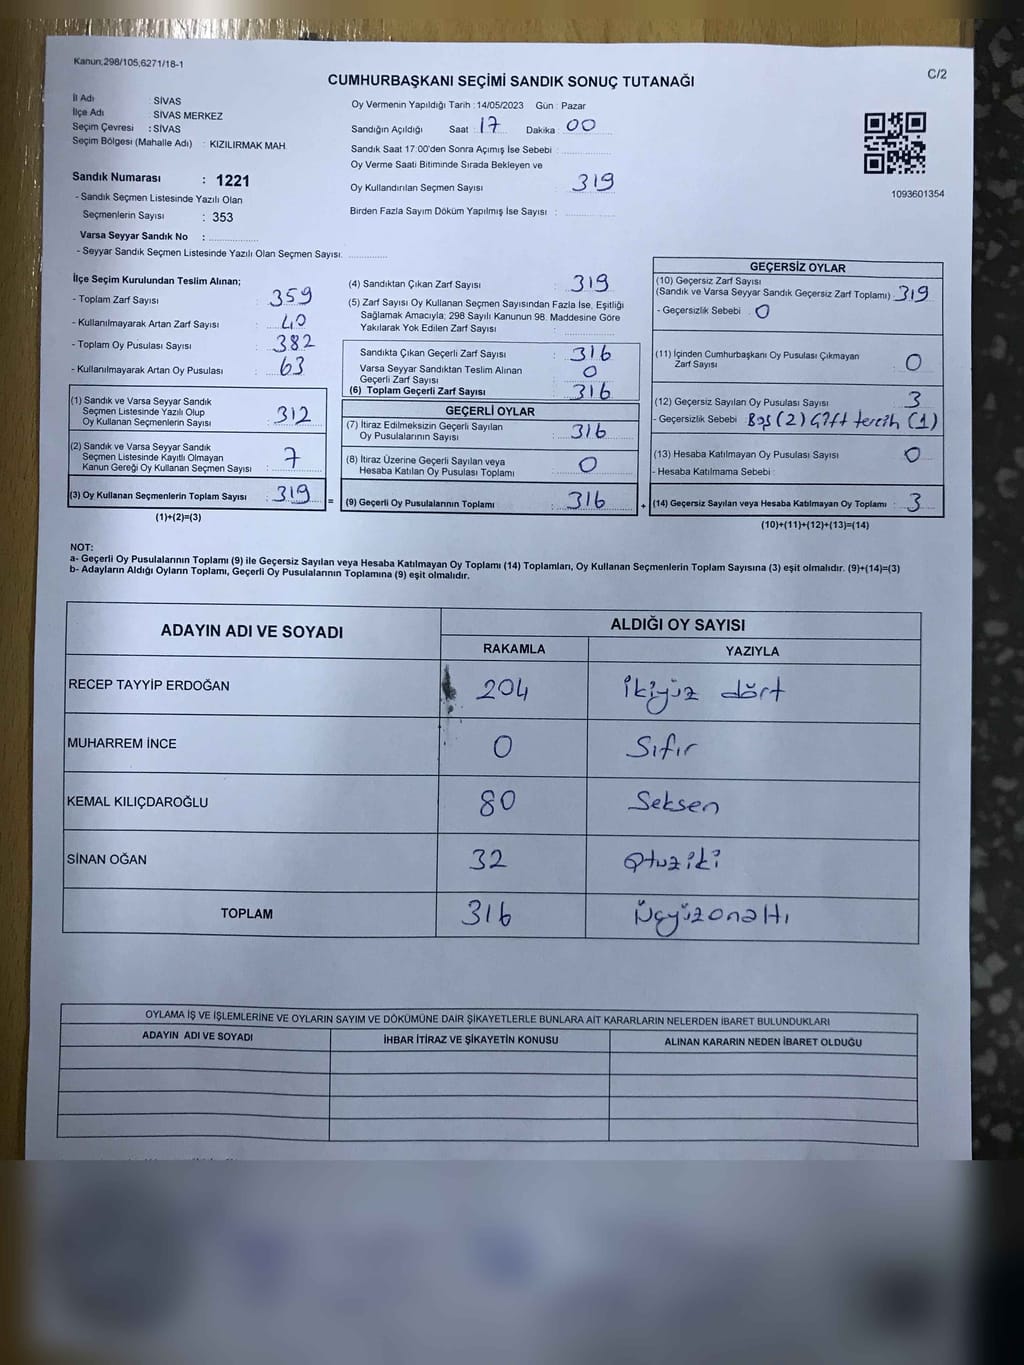 Kanun,298/105,6271/18-1
C/2
CUMHURBAŞKANI SEÇİMİ SANDIK SONUÇ TUTANAĞI
İl Adı : SİVAS
İlçe Adı : SİVAS MERKEZ
Seçim Çevresi : SİVAS
Seçim Bölgesi (Mahalle Adı) : KIZILIRMAK MAH
Sandık Numarası : 1221
- Sandık Seçmen Listesinde Yazılı Olan
Seçmenlerin Sayısı : 353
Varsa Seyyar Sandık No :
- Seyyar Sandık Seçmen Listesinde Yazılı Olan Seçmen Sayısı.
Oy Vermenin Yapıldığı Tarih : 14/05/2023 Gün : Pazar
Sandığın Açıldığı Saat : 17 Dakika : 00
Sandık Saat 17:00'den Sonra Açımış İse Sebebi :
Oy Verme Saati Bitiminde Sırada Bekleyen ve
Oy Kullandırılan Seçmen Sayısı 319
Birden Fazla Sayım Döküm Yapılmış İse Sayısı :
1093601354
İlçe Seçim Kurulundan Teslim Alınan;
- Toplam Zarf Sayısı : 359
- Kullanılmayarak Artan Zarf Sayısı : 40
- Toplam Oy Pusulası Sayısı : 382
- Kullanılmayarak Artan Oy Pusulası : 63
(1) Sandık ve Varsa Seyyar Sandık
Seçmen Listesinde Yazılı Olup
Oy Kullanan Seçmenlerin Sayısı : 312
(2) Sandık ve Varsa Seyyar Sandık
Seçmen Listesinde Kayıtlı Olmayan
Kanun Gereği Oy Kullanan Seçmen Sayısı : 7
(3) Oy Kullanan Seçmenlerin Toplam Sayısı : 319 =
(1)+(2)=(3)
(4) Sandıktan Çıkan Zarf Sayısı : 319
(5) Zarf Sayısı Oy Kullanan Seçmen Sayısından Fazla İse, Eşitliği
Sağlamak Amacıyla; 298 Sayılı Kanunun 98. Maddesine Göre
Yakılarak Yok Edilen Zarf Sayısı :
Sandıkta Çıkan Geçerli Zarf Sayısı : 316
Varsa Seyyar Sandıktan Teslim Alınan
Geçerli Zarf Sayısı : 0
(6) Toplam Geçerli Zarf Sayısı : 316
GEÇERLİ OYLAR
(7) İtiraz Edilmeksizin Geçerli Sayılan
Oy Pusulalarının Sayısı : 316
(8) İtiraz Üzerine Geçerli Sayılan veya
Hesaba Katılan Oy Pusulası Toplamı : 0
(9) Geçerli Oy Pusulalarının Toplamı : 316 +
GEÇERSİZ OYLAR
(10) Geçersiz Zarf Sayısı
(Sandık ve Varsa Seyyar Sandık Geçersiz Zarf Toplamı) : 319
- Geçersizlik Sebebi : 0
(11) İçinden Cumhurbaşkanı Oy Pusulası Çıkmayan
Zarf Sayısı : 0
(12) Geçersiz Sayılan Oy Pusulası Sayısı : 3
- Geçersizlik Sebebi : Boş (2) Çift tercih (1)
(13) Hesaba Katılmayan Oy Pusulası Sayısı : 0
- Hesaba Katılmama Sebebi :
(14) Geçersiz Sayılan veya Hesaba Katılmayan Oy Toplamı : 3
(10)+(11)+(12)+(13)=(14)
NOT:
a- Geçerli Oy Pusulalarının Toplamı (9) ile Geçersiz Sayılan veya Hesaba Katılmayan Oy Toplamı (14) Toplamları, Oy Kullanan Seçmenlerin Toplam Sayısına (3) eşit olmalıdır. (9)+(14)=(3)
b- Adayların Aldığı Oyların Toplamı, Geçerli Oy Pusulalarının Toplamına (9) eşit olmalıdır.
ADAYIN ADI VE SOYADI
ALDIĞI OY SAYISI
RAKAMLA YAZIYLA
RECEP TAYYİP ERDOĞAN 204 İkiyüz dört
MUHARREM İNCE 0 Sıfır
KEMAL KILIÇDAROĞLU 80 Seksen
SİNAN OĞAN 32 Otuziki
TOPLAM 316 Üçyüzonaltı
OYLAMA İŞ VE İŞLEMLERİNE VE OYLARIN SAYIM VE DÖKÜMÜNE DAİR ŞİKAYETLERLE BUNLARA AİT KARARLARIN NELERDEN İBARET BULUNDUKLARI
ADAYIN ADI VE SOYADI İHBAR İTİRAZ VE ŞİKAYETİN KONUSU ALINAN KARARIN NEDEN İBARET OLDUĞU